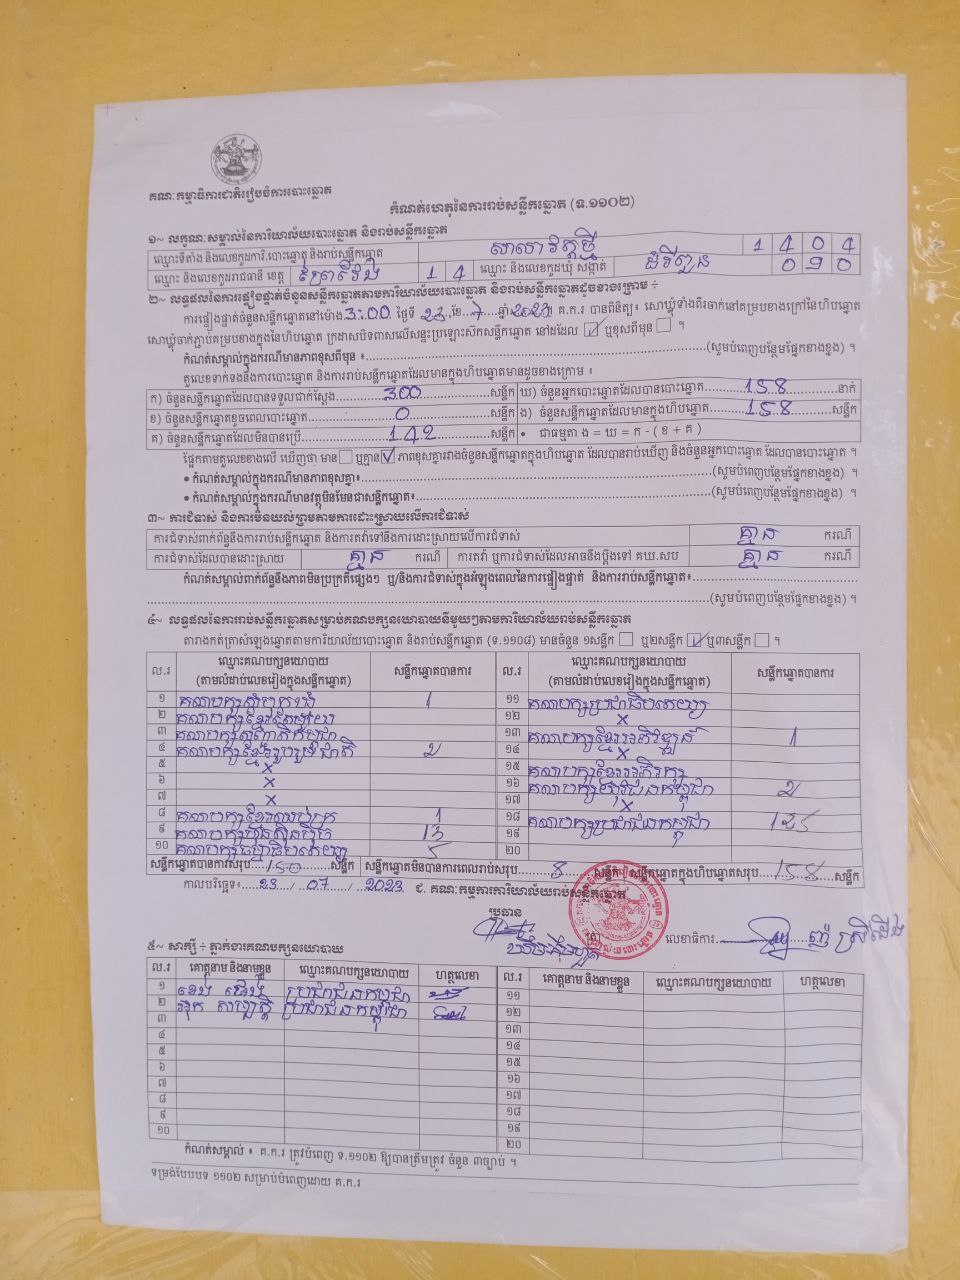 គណៈកម្មាធិការជាតិរៀបចំការបោះឆ្នោត
កំណត់ហេតុនៃការរាប់សន្លឹកឆ្នោត (ទ.១១០២)
១~ លក្ខណៈសម្គាល់នៃការិយាល័យបោះឆ្នោត និងរាប់សន្លឹកឆ្នោត
ឈ្មោះទីតាំង និងលេខកូដការិ.បោះឆ្នោត និងរាប់សន្លឹកឆ្នោត សាលា វត្តថ្មី 1 4 0 4
ឈ្មោះ និងលេខកូដរាជធានី ខេត្ត ព្រៃវែង 1 4 ឈ្មោះ និងលេខកូដឃុំ សង្កាត់ 0 9 0
២~ លទ្ធផលនៃការផ្ទៀងផ្ទាត់ចំនួនសន្លឹកឆ្នោតតាមការិយាល័យបោះឆ្នោត និងរាប់សន្លឹកឆ្នោតដូចខាងក្រោម ÷
ការផ្ទៀងផ្ទាត់ចំនួនសន្លឹកឆ្នោតនៅម៉ោង 3:00 ថ្ងៃទី 23 ខែ 7 ឆ្នាំ 2023 គ.ក.រ បានពិនិត្យ៖ សោឃ្លុំទាំងពីរចាក់នៅគម្របខាងក្រៅនៃហិបឆ្នោត
សោឃ្លុំចាក់ភ្ជាប់គម្របខាងក្នុងនៃហិបឆ្នោត ក្រដាសបិទពាសលើសន្ទះប្រឡោះសឹកសន្លឹកឆ្នោត នៅដដែល ☑ ឬខុសពីមុន ☐ ។
កំណត់សម្គាល់ក្នុងករណីមានភាពខុសពីមុន ៖ (សូមបំពេញបន្ថែមផ្នែកខាងខ្នង) ។
តួលេខទាក់ទងនឹងការបោះឆ្នោត និងការរាប់សន្លឹកឆ្នោតដែលមានក្នុងហិបឆ្នោតមានដូចខាងក្រោម ៖
ក) ចំនួនសន្លឹកឆ្នោតដែលបានទទួលជាក់ស្តែង 300 សន្លឹក ឃ) ចំនួនអ្នកបោះឆ្នោតដែលបានបោះឆ្នោត 158 នាក់
ខ) ចំនួនសន្លឹកឆ្នោតខូចពេលបោះឆ្នោត 0 សន្លឹក ង) ចំនួនសន្លឹកឆ្នោតដែលមានក្នុងហិបឆ្នោត 158 សន្លឹក
គ) ចំនួនសន្លឹកឆ្នោតដែលមិនបានប្រើ 142 សន្លឹក • ជាធម្មតា ង = ឃ = ក - ( ខ + គ )
ផ្អែកតាមតួលេខខាងលើ ឃើញថា មាន ☐ ឬគ្មាន ☑ ភាពខុសគ្នារវាងចំនួនសន្លឹកឆ្នោតក្នុងហិបឆ្នោត ដែលបានរាប់ឃើញ និងចំនួនអ្នកបោះឆ្នោត ដែលបានបោះឆ្នោត ។
• កំណត់សម្គាល់ក្នុងករណីមានភាពខុសគ្នា៖ (សូមបំពេញបន្ថែមផ្នែកខាងខ្នង) ។
• កំណត់សម្គាល់ក្នុងករណីមានវត្ថុមិនមែនជាសន្លឹកឆ្នោត៖ (សូមបំពេញបន្ថែមផ្នែកខាងខ្នង) ។
៣~ ការជំទាស់ និងការមិនយល់ព្រមតាមការដោះស្រាយលើការជំទាស់
ការជំទាស់ពាក់ព័ន្ធនឹងការរាប់សន្លឹកឆ្នោត និងការតវ៉ាទៅនឹងការដោះស្រាយលើការជំទាស់ គ្មាន ករណី
ការជំទាស់ដែលបានដោះស្រាយ គ្មាន ករណី ការតវ៉ា ឬការជំទាស់ដែលអាចនឹងប្តឹងទៅ គឃ.សប គ្មាន ករណី
កំណត់សម្គាល់ពាក់ព័ន្ធនឹងភាពមិនប្រក្រតីផ្សេងៗ ឬ/និងការជំទាស់ក្នុងអំឡុងពេលនៃការផ្ទៀងផ្ទាត់ និងការរាប់សន្លឹកឆ្នោត៖
(សូមបំពេញបន្ថែមផ្នែកខាងខ្នង) ។
៤~ លទ្ធផលនៃការរាប់សន្លឹកឆ្នោតសម្រាប់គណបក្សនយោបាយនីមួយៗតាមការិយាល័យរាប់សន្លឹកឆ្នោត
តារាងកត់ត្រាសំឡេងឆ្នោតតាមការិយាល័យបោះឆ្នោត និងរាប់សន្លឹកឆ្នោត (ទ.១១០៨) មានចំនួន ១សន្លឹក ☐ ឬ២សន្លឹក ☑ ឬ៣សន្លឹក ☐ ។
ល.រ ឈ្មោះគណបក្សនយោបាយ (តាមលំដាប់លេខរៀងក្នុងសន្លឹកឆ្នោត) សន្លឹកឆ្នោតបានការ ល.រ ឈ្មោះគណបក្សនយោបាយ (តាមលំដាប់លេខរៀងក្នុងសន្លឹកឆ្នោត) សន្លឹកឆ្នោតបានការ
១ 1 ១១ គណបក្សប្រជាធិបតេយ្យ
២ គណបក្សខ្មែរតែមួយ ១២ ×
៣ ១៣ គណបក្សខ្មែរអភិវឌ្ឍន៍ 1
៤ គណបក្សខ្មែររួបរួមជាតិ 2 ១៤ ×
៥ × ១៥ គណបក្សខ្មែរអភិរក្ស
៦ × ១៦ 2
៧ × ១៧ ×
៨ គណបក្សខ្មែរឈប់ក្រ 1 ១៨ គណបក្សប្រជាជនកម្ពុជា 125
៩ គណបក្សហ្វ៊ុនស៊ិនប៉ិច 13 ១៩
១០ គណបក្សធម្មាធិបតេយ្យ 5 ២០
សន្លឹកឆ្នោតបានការសរុប 150 សន្លឹក សន្លឹកឆ្នោតមិនបានការពេលរាប់សរុប 8 សន្លឹក សន្លឹកឆ្នោតក្នុងហិបឆ្នោតសរុប 158 សន្លឹក
កាលបរិច្ឆេទ៖ 23 / 07 / 2023 ជ. គណៈកម្មការការិយាល័យរាប់សន្លឹកឆ្នោត
ប្រធាន
លេខាធិការ
៥~ សាក្សី ÷ ភ្នាក់ងារគណបក្សនយោបាយ
ល.រ គោត្តនាម និងនាមខ្លួន ឈ្មោះគណបក្សនយោបាយ ហត្ថលេខា ល.រ គោត្តនាម និងនាមខ្លួន ឈ្មោះគណបក្សនយោបាយ ហត្ថលេខា
១ ប្រជាជនកម្ពុជា ១១
២ ប្រជាជនកម្ពុជា ១២
៣ ១៣
៤ ១៤
៥ ១៥
៦ ១៦
៧ ១៧
៨ ១៨
៩ ១៩
១០ ២០
កំណត់សម្គាល់ ៖ គ.ក.រ ត្រូវបំពេញ ទ.១១០២ ឱ្យបានត្រឹមត្រូវ ចំនួន ៣ច្បាប់ ។
ទម្រង់បែបបទ ១១០២ សម្រាប់បំពេញដោយ គ.ក.រ